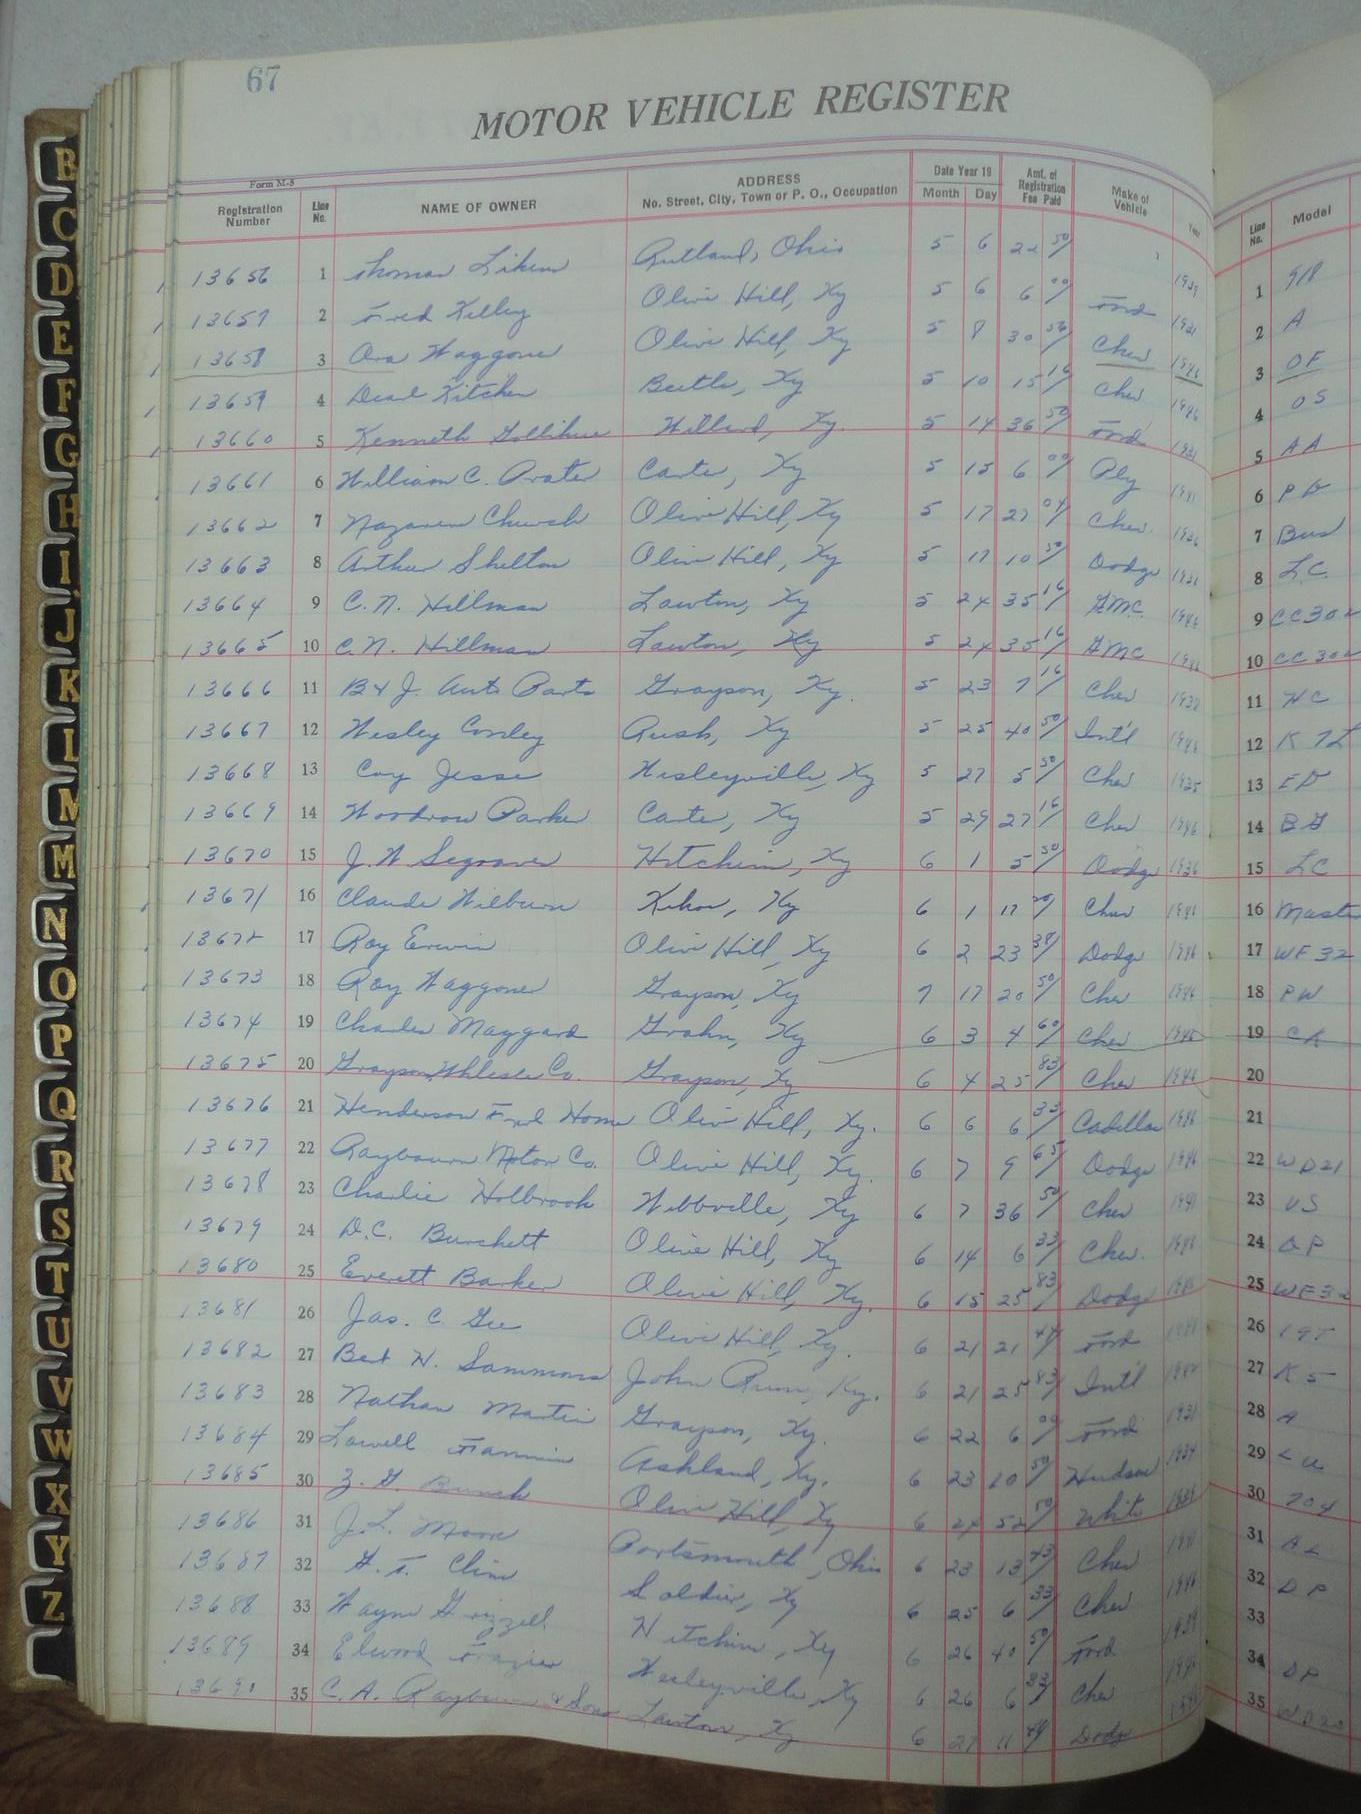 67
MOTOR VEHICLE REGISTER
Form M-5
Registration Number Line No. NAME OF OWNER ADDRESS No. Street, City, Town or P. O., Occupation Date Year 19 Month Day Amt. of Registration Fee Paid Make of Vehicle Year Line No. Model
13656 1 Thomas Rutland, Ohio 5 6 22 50 1939 1 918
13657 2 Fred Kelley Olive Hill, Ky 5 6 6 00 Ford 1931 2 A
13658 3 Ora Waggoner Olive Hill, Ky 5 8 30 Chev 1946 3
13659 4 Kitchen Beetle, Ky 5 10 15 16 Chev 1946 4 OS
13660 5 Kenneth Gollihue Willard, Ky. 5 14 36 50 Ford 1931 5 AA
13661 6 William C. Prater Carter, Ky 5 15 6 00 Ply 6
13662 7 Nazarene Church Olive Hill, Ky 5 17 27 04 Chev. 1936 7 Bus
13663 8 Arthur Shelton Olive Hill, Ky 5 17 10 50 Dodge 8 LC
13664 9 C. N. Hillman Lawton, Ky 5 24 35 16 GMC 1946 9 CC302
13665 10 C. N. Hillman Lawton, Ky 5 24 35 16 GMC 1946 10 CC302
13666 11 B & J. Auto Parts Grayson, Ky. 5 23 7 16 Chev 11
13667 12 Wesley Conley Rush, Ky 5 25 40 50 Int'l 1946 12
13668 13 Coy Jesse Wesleyville, Ky 5 27 5 50 Chev 1935 13 ED
13669 14 Woodrow Parker Carter, Ky 5 29 27 16 Chev 1946 14 BG
13670 15 J. W. Segraves Hitchins, Ky 6 1 5 50 Dodge 1936 15 LC
13671 16 Claude Wilburn Kehoe, Ky 6 1 17 Chev 1941 16 Master
13672 17 Roy Erwin Olive Hill, Ky 6 2 23 38 Dodge 1946 17 WF 32
13673 18 Roy Waggoner Grayson, Ky 7 17 20 50 Chev 1946 18 PW
13674 19 Charles Maggard Grahn, Ky 6 3 4 60 Chev 19 CK
13675 20 Grayson Whlesle Co. Grayson, Ky 6 4 25 83 Chev 1946 20
13676 21 Henderson Fnrl Home Olive Hill, Ky. 6 6 6 33 Cadillac 1946 21
13677 22 Raybourn Motor Co. Olive Hill, Ky. 6 7 9 65 Dodge 1946 22 WD21
13678 23 Charlie Holbrook Webbville, Ky 6 7 36 50 Chev 1941 23
13679 24 D.C. Burchett Olive Hill, Ky 6 14 6 33 Chev. 1946 24 DP
13680 25 Everett Barker Olive Hill, Ky. 6 15 25 83 Dodge 25 WF32
13681 26 Jas. C. Gee Olive Hill, Ky. 6 21 21 44 Ford 26 19T
13682 27 Bert H. Sammons John Run, Ky. 6 21 25 83 Int'l 27 K 5
13683 28 Nathan Martin Grayson, Ky. 6 22 6 00 Ford 1931 28 A
13684 29 Lowell Fannin Ashland, Ky. 6 23 10 50 Hudson 1934 29
13685 30 Z. G. Burch Olive Hill, Ky 6 24 52 50 White 30 704
13686 31 J.L. Moore Portsmouth, Ohio 6 23 13 43 Chev 31
13687 32 G. T. Cline Soldier, Ky 6 25 6 33 Chev 1946 32 DP
13688 33 Wayne Grizzell Hitchins, Ky 6 26 40 50 Ford 1939 33
13689 34 Elwood Frazier Wesleyville, Ky 6 26 6 33 Chev 1946 34 DP
13690 35 C. A. Raybourn & Sons Lawton, Ky 6 27 11 44 Dodge 35 WD20
B
C
D
E
F
G
H
I
J
K
L
M
M
N
O
P
Q
R
S
T
U
V
W
X
Y
Z